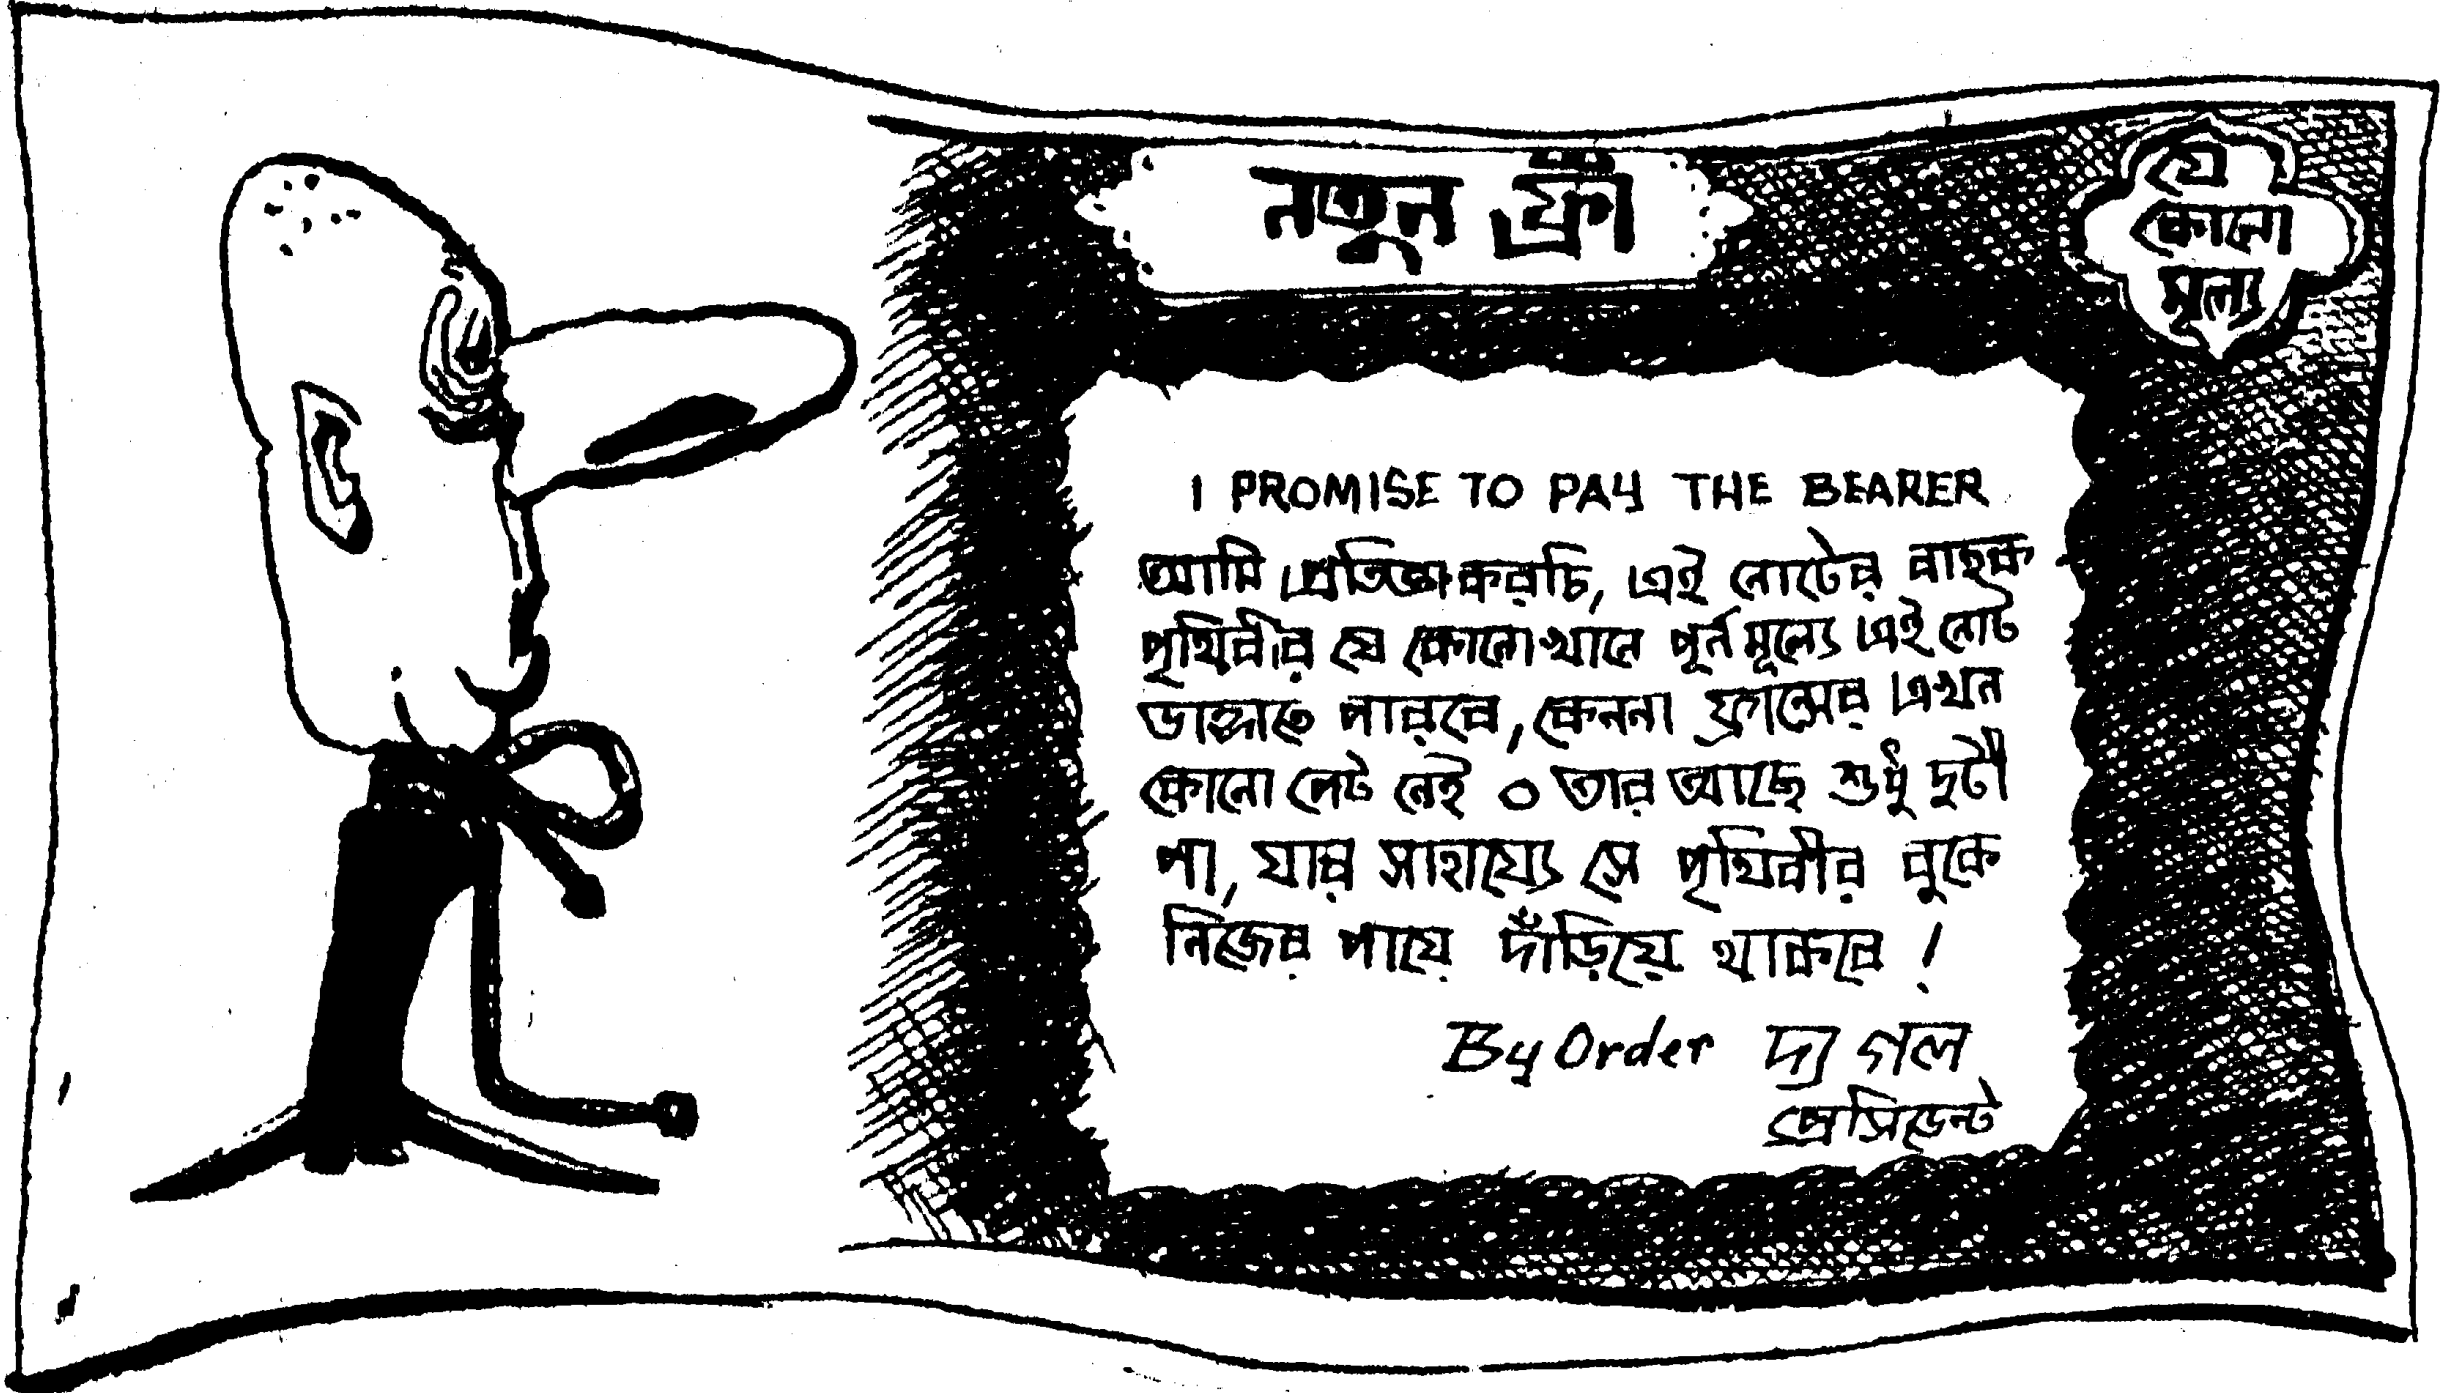 নতুন ফ্রাঁ
যে
কোনো
মূল্য
I PROMISE TO PAY THE BEARER
আমি প্রতিজ্ঞা করচি, এই নোটের বাহক
পৃথিবীর যে কোনো খানে পূর্ন মূল্যে এই নোট
ভাঙ্গাতে পারবে, কেননা ফ্রান্সের এখন
কোনো পেট নেই ০ তার আছে শুধু দুটী
পা, যার সাহায্যে সে পৃথিবীর বুকে
নিজের পায়ে দাঁড়িয়ে থাকবে !
By Order দ্য গল
প্রেসিডেন্ট